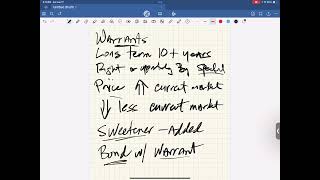 Warrants
Long Term 10+ years
Right or opportunity Buy
Price ↑ current market
↓ less current market
Sweetener - Added
Bond w/ Warrant